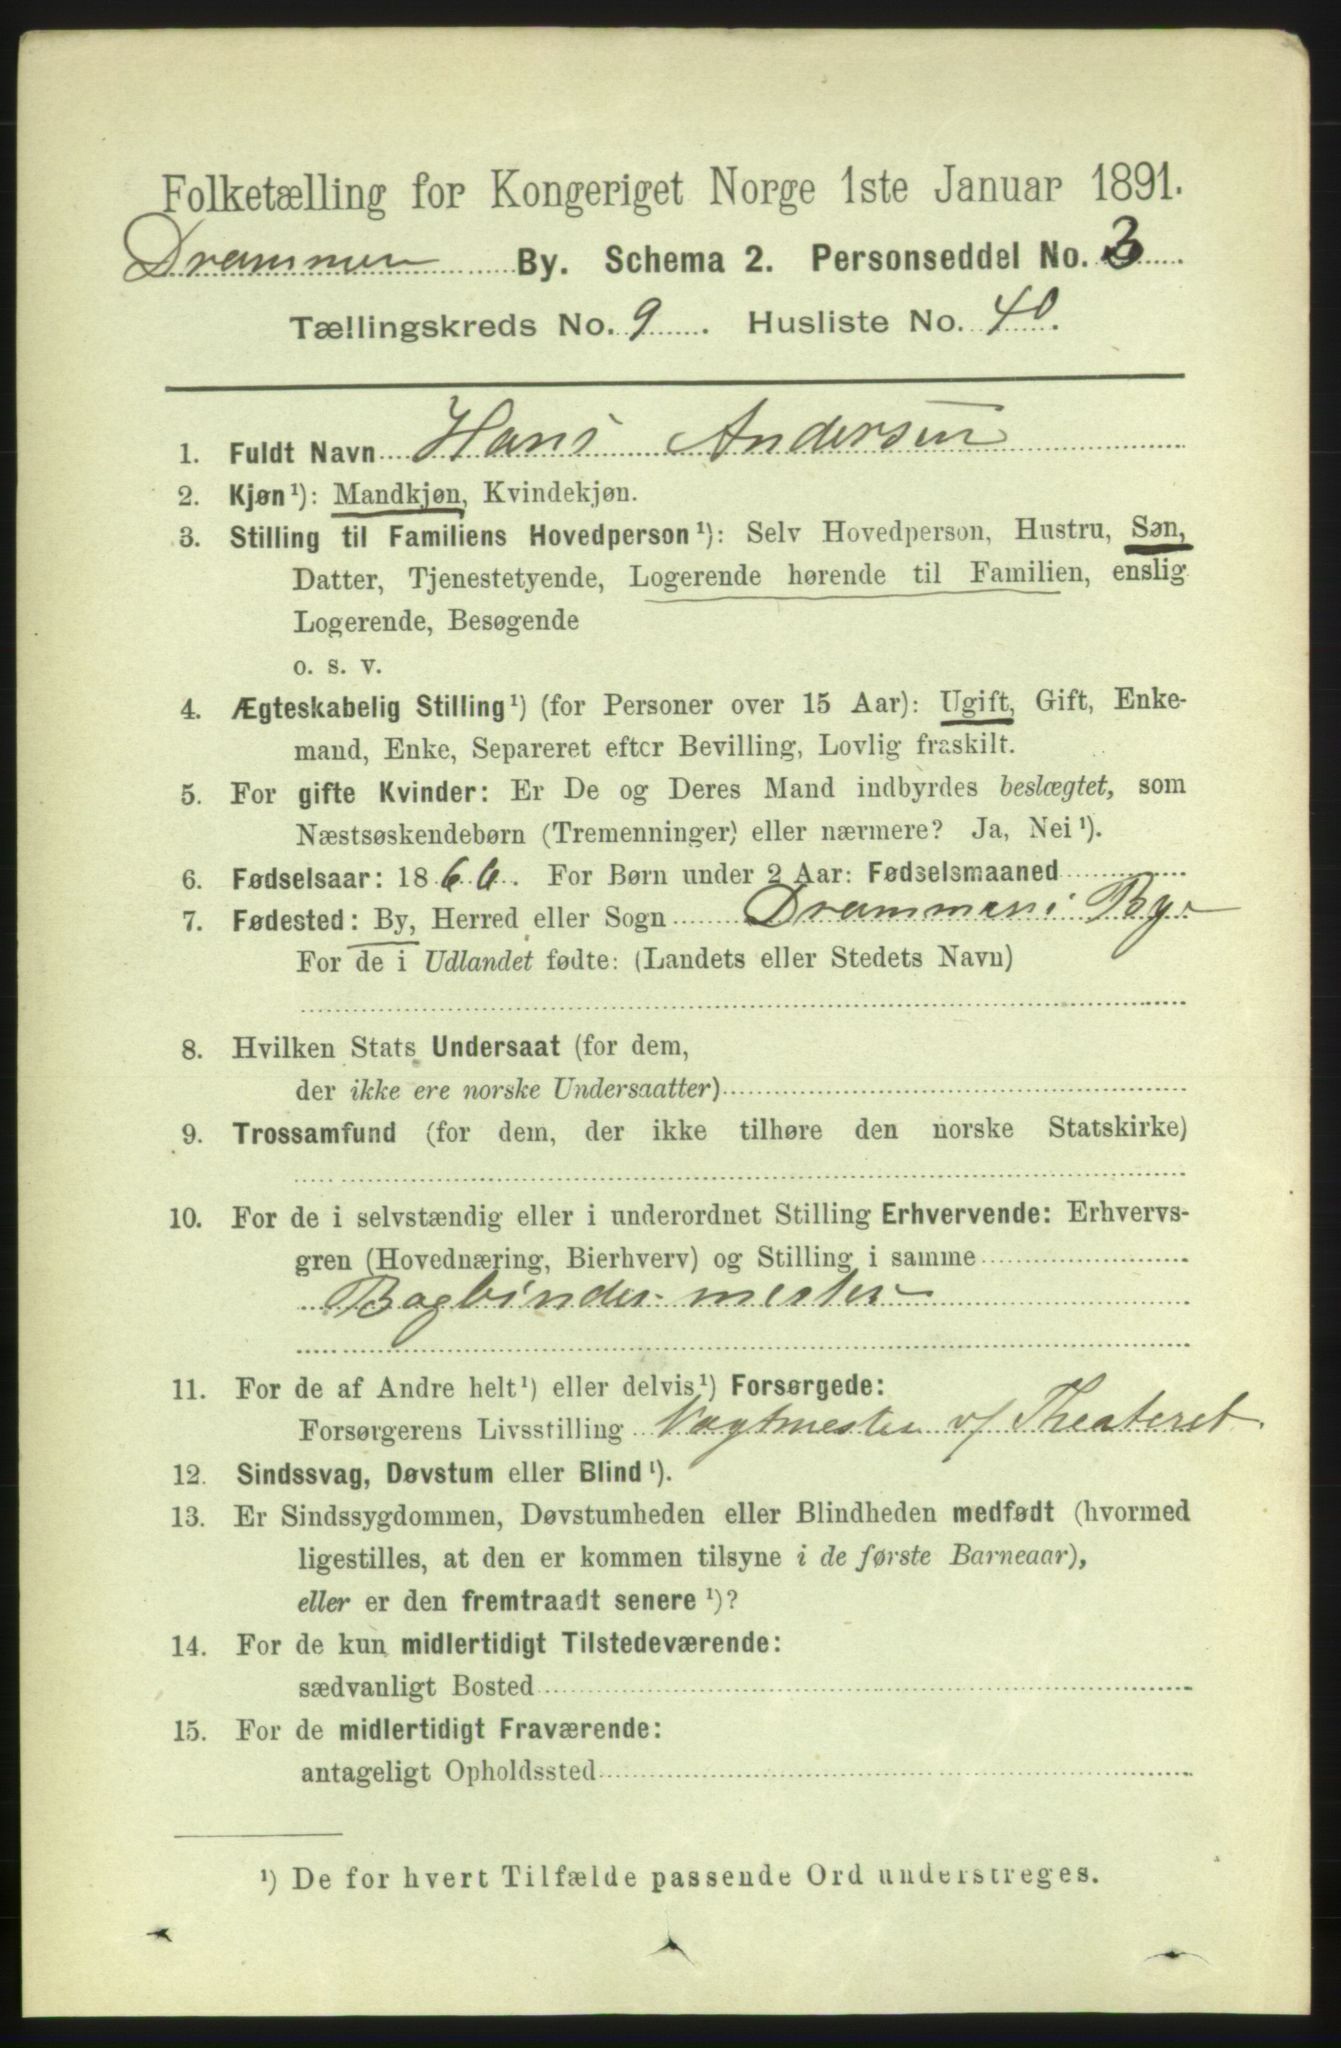 Folketælling for Kongeriget Norge 1ste Januar 1891.
Drammen By. Schema 2. Personseddel No. 3
Tællingskreds No. 9. Husliste No. 40.
1. Fuldt Navn Hans Andersen
2. Kjøn¹): Mandkjøn, Kvindekjøn.
3. Stilling til Familiens Hovedperson¹): Selv Hovedperson, Hustru, Søn,
Datter, Tjenestetyende, Logerende hørende til Familien, enslig
Logerende, Besøgende
o. s. v.
4. Ægteskabelig Stilling¹) (for Personer over 15 Aar): Ugift, Gift, Enke-
mand, Enke, Separeret efter Bevilling, Lovlig fraskilt.
5. For gifte Kvinder: Er De og Deres Mand indbyrdes beslægtet, som
Næstsøskendebørn (Tremenninger) eller nærmere? Ja, Nei¹).
6. Fødselsaar: 1866. For Børn under 2 Aar: Fødselsmaaned
7. Fødested: By, Herred eller Sogn Drammens By
For de i Udlandet fødte: (Landets eller Stedets Navn)
8. Hvilken Stats Undersaat (for dem,
der ikke ere norske Undersaatter)
9. Trossamfund (for dem, der ikke tilhøre den norske Statskirke)
10. For de i selvstændig eller i underordnet Stilling Erhvervende: Erhvervs-
gren (Hovednæring, Bierhverv) og Stilling i samme
Bogbindermester
11. For de af Andre helt¹) eller delvis¹) Forsørgede:
Forsørgerens Livsstilling Vagtmester v/ Theateret
12. Sindssvag, Døvstum eller Blind¹).
13. Er Sindssygdommen, Døvstumheden eller Blindheden medfødt (hvormed
ligestilles, at den er kommen tilsyne i de første Barneaar),
eller er den fremtraadt senere¹)?
14. For de kun midlertidigt Tilstedeværende:
sædvanligt Bosted
15. For de midlertidigt Fraværende:
antageligt Opholdssted
¹) De for hvert Tilfælde passende Ord understreges.